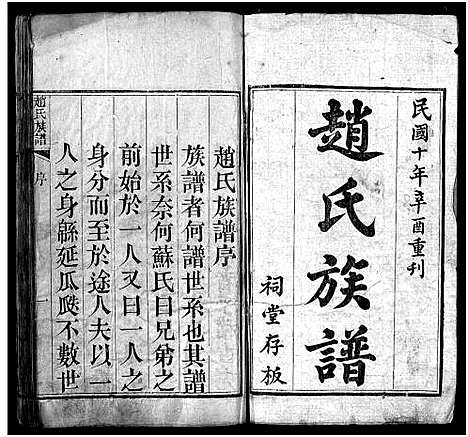 民國十年辛酉重刊
趙氏族譜
祠堂存板
趙氏族譜序
族譜者何譜世系也其譜
世系奈何蘇氏曰兄弟之
前始於一人又曰一人之
身分而至於途人夫以一
人之身緜延瓜瓞不數世
趙氏族譜
序
一